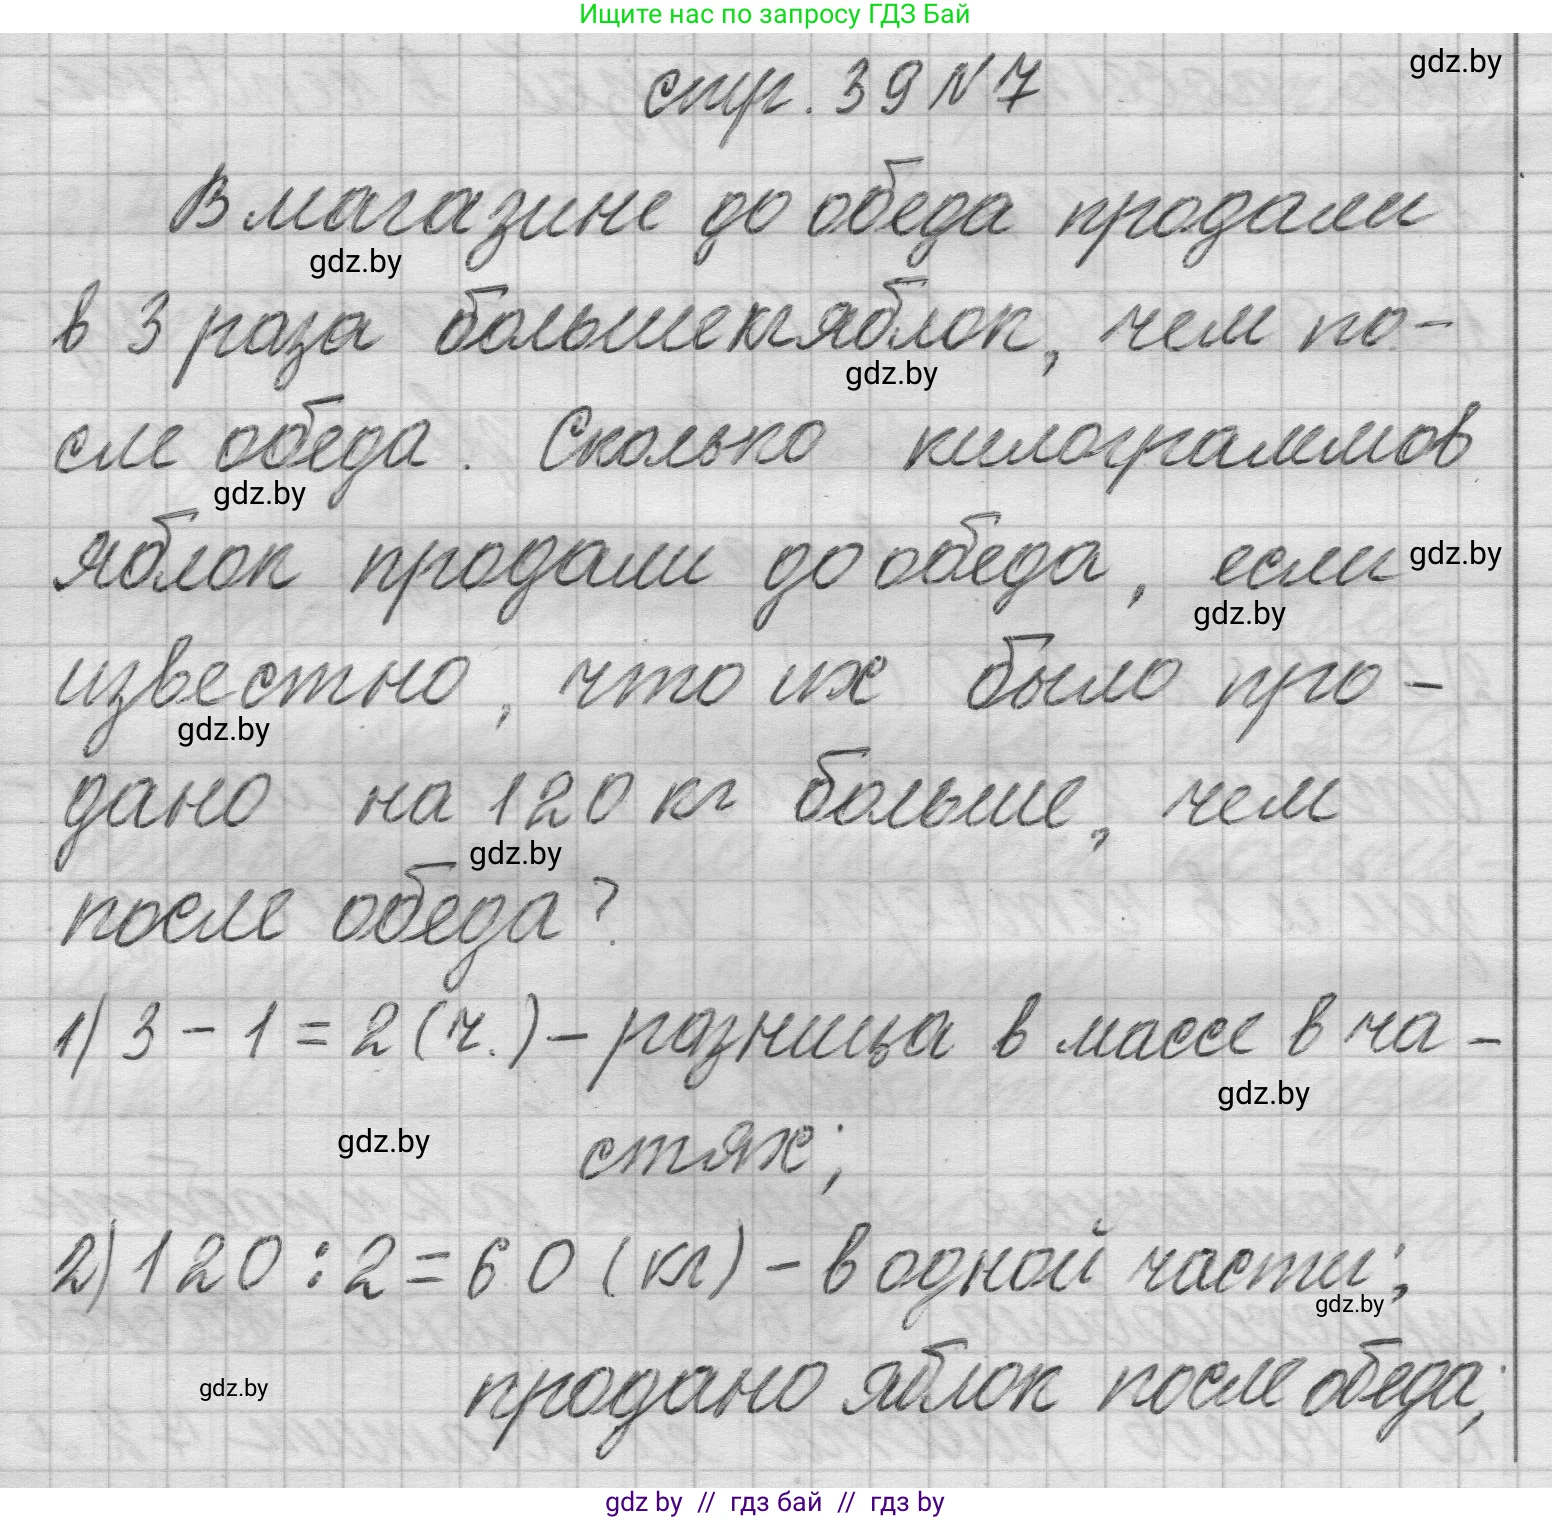 Ищите нас по запросу ГДЗ Бай
gdz.by
стр. 39 № 7
В магазине до обеда продали
gdz.by
в 3 раза больше кг яблок, чем по-
gdz.by
сле обеда. Сколько килограммов
gdz.by
яблок продали до обеда, если
gdz.by
gdz.by
известно, что их было про-
gdz.by
дано на 120 кг больше, чем
gdz.by
после обеда?
1) 3 - 1 = 2 (ч.) - разница в массе в ча-
gdz.by
gdz.by
стях;
2) 120 : 2 = 60 (кг) - в одной части;
gdz.by
gdz.by
продано яблок после обеда;
gdz by // гдз бай // гдз by